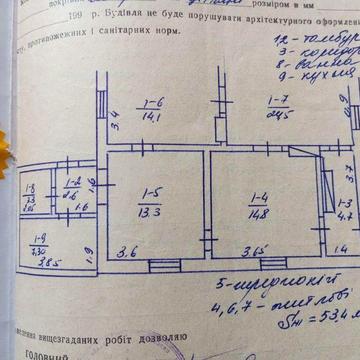 розміром в мм
199 р. Будівля не буде порушувати архітектурного оформлен
протипожежних і санітарних норм.
12 - тамбур
3 - коридор
8 - ванна
9 - кухня
1-6
14,1
3.4
1-7
24,5
1-8
2.3
1-2
2.6
1.6
1.6
1-5
13.3
1-4
14.8
3.7
1-3
4.7
1-9
3.85
1.9
3.6
3.65
1.4
4, 6, 7 - житлові
= 53,4 м
вищезгаданих робіт дозволяю
ГОЛОВНИЙ